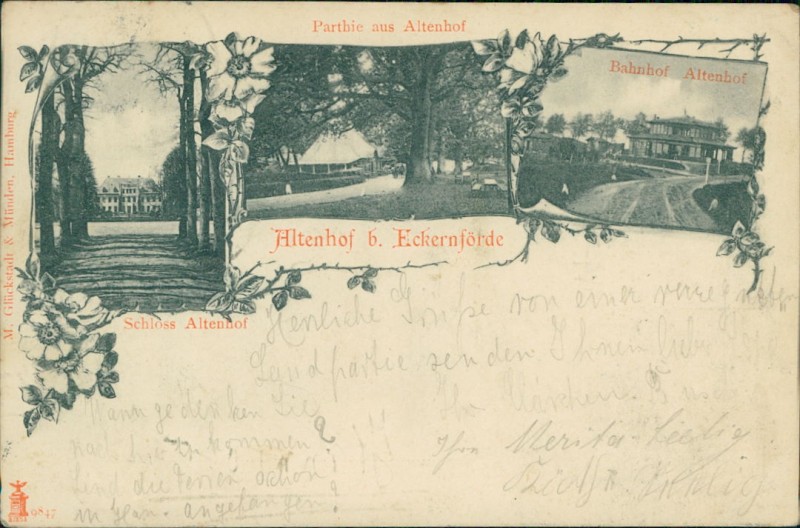 Parthie aus Altenhof
Bahnhof Altenhof
Altenhof b. Eckernförde
Schloss Altenhof
M. Glückstadt & Münden, Hamburg
Herzliche Grüße von einer verregneten
Landpartie senden Ihnen lieber
Ihr
Ihre Merita
Wann gedenken Sie
nach hier zu kommen?
Sind die Ferien schon
in Han. angefangen?
9847